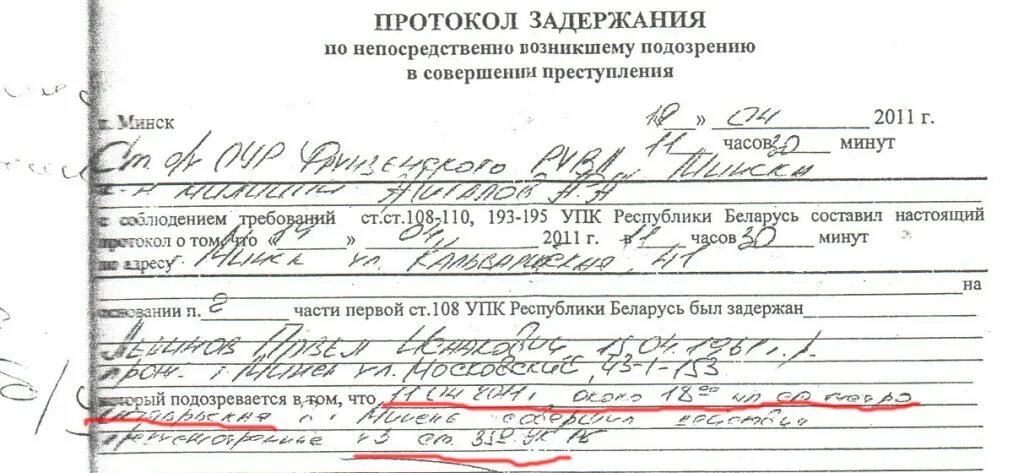 ПРОТОКОЛ ЗАДЕРЖАНИЯ
по непосредственно возникшему подозрению
в совершении преступления
г. Минск » 04 2011 г.
11 часов 30 минут
Ст о/у ОУР Фрунзенского РУВД г. Минска
к-н милиции
с соблюдением требований ст.ст.108-110, 193-195 УПК Республики Беларусь составил настоящий
протокол о том, что « » 04 2011 г. в 11 часов 30 минут
по адресу г. Минск ул. Кальварийская, 41
на
основании п. 2 части первой ст.108 УПК Республики Беларусь был задержан
Павел Исаакович 15.04.1961 г.р.
прож. г. Минск ул. Московский, 43-1-153
который подозревается в том, что 11.04.2011г. около 18⁰⁰ на ст. метро
Октябрьская г. Минска совершил действия
предусмотренные ч3 ст. 359 УК РБ